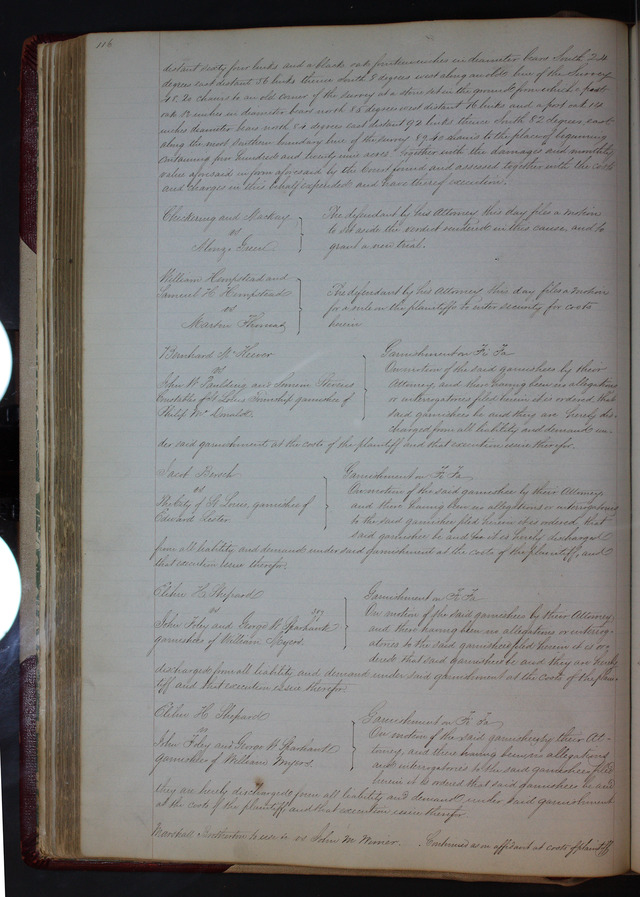 116
distant sixty four links and a black oak fourteen inches in diameter bears South 24
degrees east distant 56 links thence South 8 degrees west along an old line of the Survey
48.20 chains to an old corner of the survey at a stone set in the ground from which a post
oak 12 inches in diameter bears north 85 degrees west distant 76 links and a post oak 14
inches diameter bears north 80 degrees east distant 92 links thence South 82 degrees east
along the most Southern boundary line of the survey 89.40 chains to the place of beginning
containing four Hundred and twenty nine acres together with the damages and monthly
value aforesaid in form aforesaid by the Court found and assessed together with the costs
and charges in this behalf expended and have thereof execution.
Chickering and Mackay
vs
Alonzo Green
The defendant by his Attorney this day files a motion
to set aside the verdict rendered in this cause, and to
grant a new trial.
William Hempstead and
Samuel H Hempstead
vs
Martin Thomas
The defendant by his Attorney this day files a motion
for a rule on the plaintiffs to enter security for costs
herein
Bernhard McKeever
vs
John W Paulding and Simeon Stevens
Constable of St Louis Township garnishee of
Philip McDonald
Garnishment on Fi Fa
On motion of the said garnishee by their
Attorney and there having been no allegations
or interrogatories filed herein it is ordered that
said garnishee be and they are hereby dis-
charged from all liability and demands un-
der said garnishments at the costs of the plaintiff and that execution issue therefor.
Jacob Bersch
vs
The City of St Louis, garnishee of
Edward Lester
Garnishment on Fi Fa
On motion of the said garnishee by their Attorney
and there having been no allegations or interrogatories
to the said garnishee filed herein it is ordered, that
said garnishee be and it is hereby discharged
from all liability and demand under said garnishment at the costs of the plaintiff, and
that execution issue therefor.
Elihu H. Shepard
vs
John Foley and George W Sparhawk
garnishees of William Myers.
Garnishment on Fi Fa
On motion of the said garnishees by their Attorney
and there having been no allegations or interrog-
atories to the said garnishees filed herein it is or-
dered that said garnishees be and they are hereby
discharged from all liability and demand under said garnishment at the costs of the plain-
tiff and that execution issue therefor.
Elihu H Shepard
vs
John Foley and George W Sparhawk
garnishees of William Myers.
Garnishment on Fi Fa
On motion of the said garnishees by their At-
torney, and there having been no allegations
and interrogatories to the said garnishees filed
herein it is ordered that said garnishees be and
they are hereby discharged from all liability and demand under said garnishment
at the costs of the plaintiff, and that execution issue therefor
Marshall Brotherton to use &c vs John M Wimer. Continued as on affidavit at costs of plaintiff